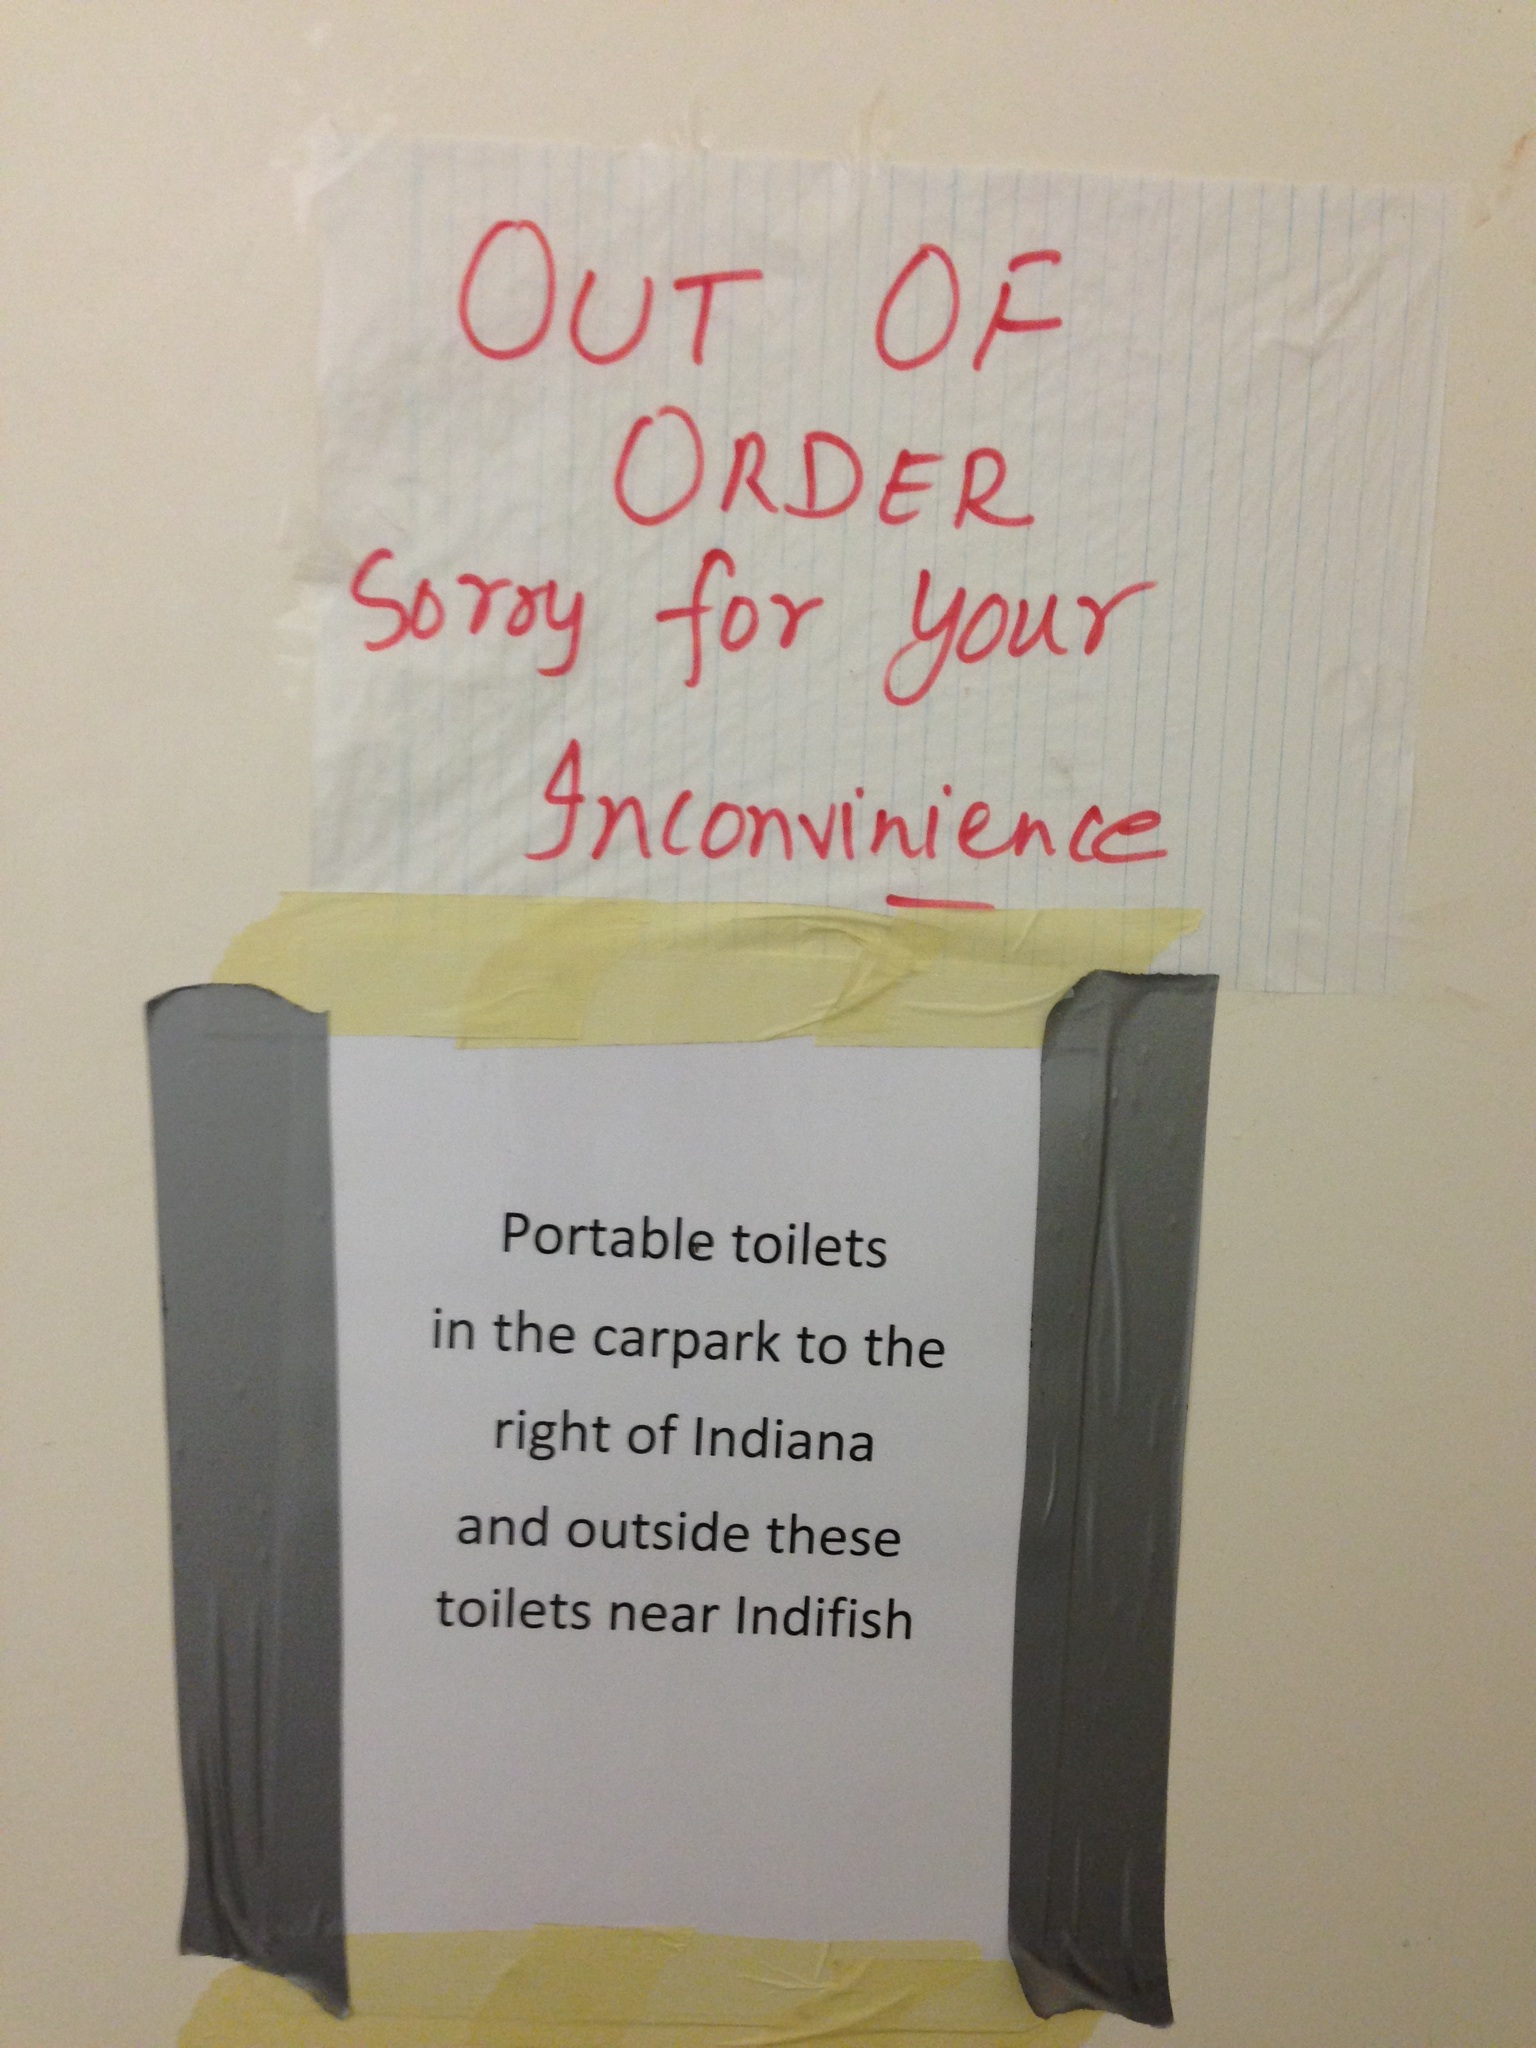 OUT OF
ORDER
Sorry for your
Inconvinience
Portable toilets
in the carpark to the
right of Indiana
and outside these
toilets near Indifish